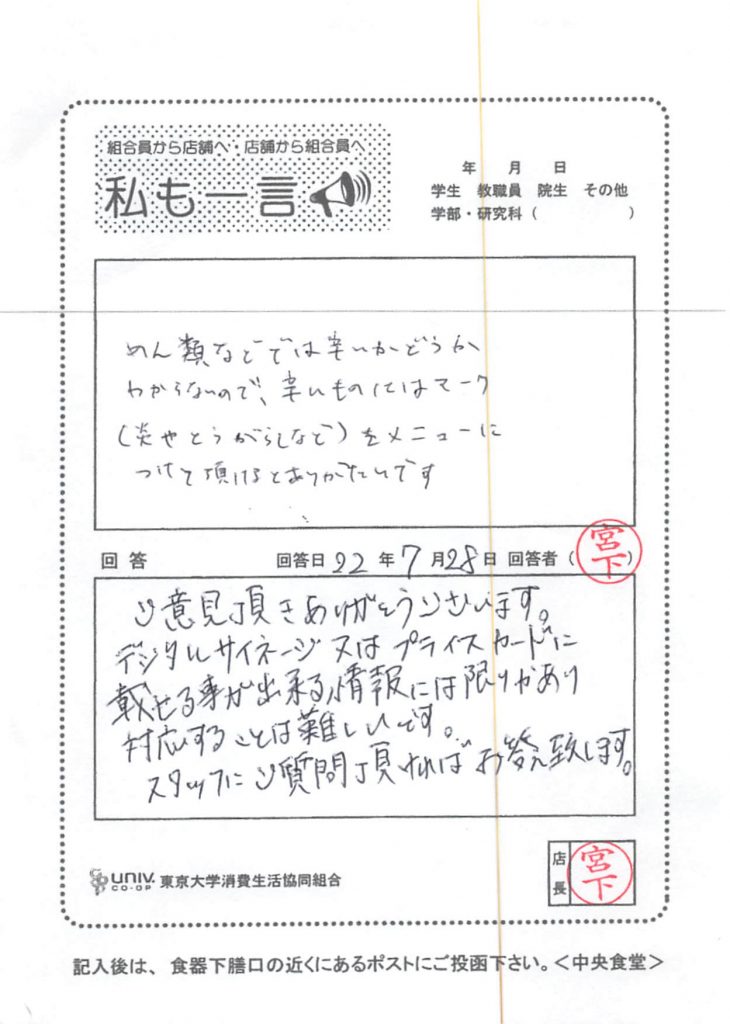 組合員から店舗へ・店舗から組合員へ
私も一言
年 月 日
学生 教職員 院生 その他
学部・研究科（ ）
めん類などでは辛いかどうか
わからないので、辛いものにはマーク
（炎やとうがらしなど）をメニューに
つけて頂けるとありがたいです
回答 回答日 22 年 7 月 28 日 回答者（宮下）
ご意見頂きありがとうございます。
デジタルサイネージ又はプライスカードに
載せる事が出来る情報には限りがあり
対応することは難しいです。
スタッフにご質問頂ければお答え致します。
UNIV. CO-OP 東京大学消費生活協同組合
店長 宮下
記入後は、食器下膳口の近くにあるポストにご投函下さい。＜中央食堂＞